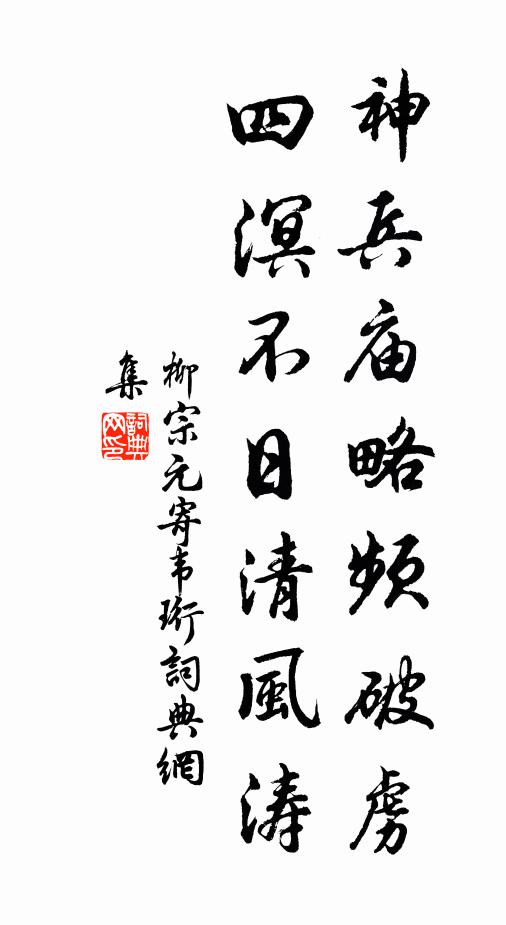 神兵庙略频破虏
四溟不日清風涛
柳宗元寄韦珩詞典網
集
詞典网印